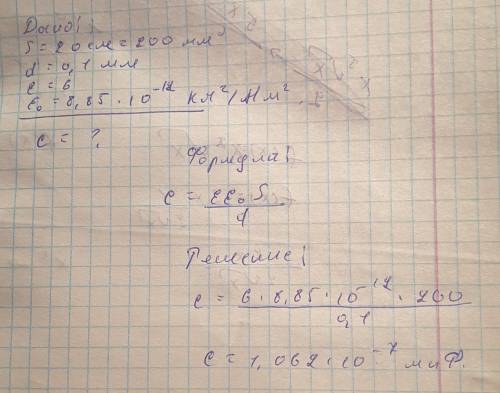 Дано:
S = 20 см = 200 мм²
d = 0,1 мм
ε = 6
ε₀ = 8,85 · 10⁻¹² Кл²/Нм²
c = ?
Формула:
c = εε₀ S / d
Решение:
c = 6 · 8,85 · 10⁻¹² · 200 / 0,1
c = 1,062 · 10⁻⁷ мкФ.